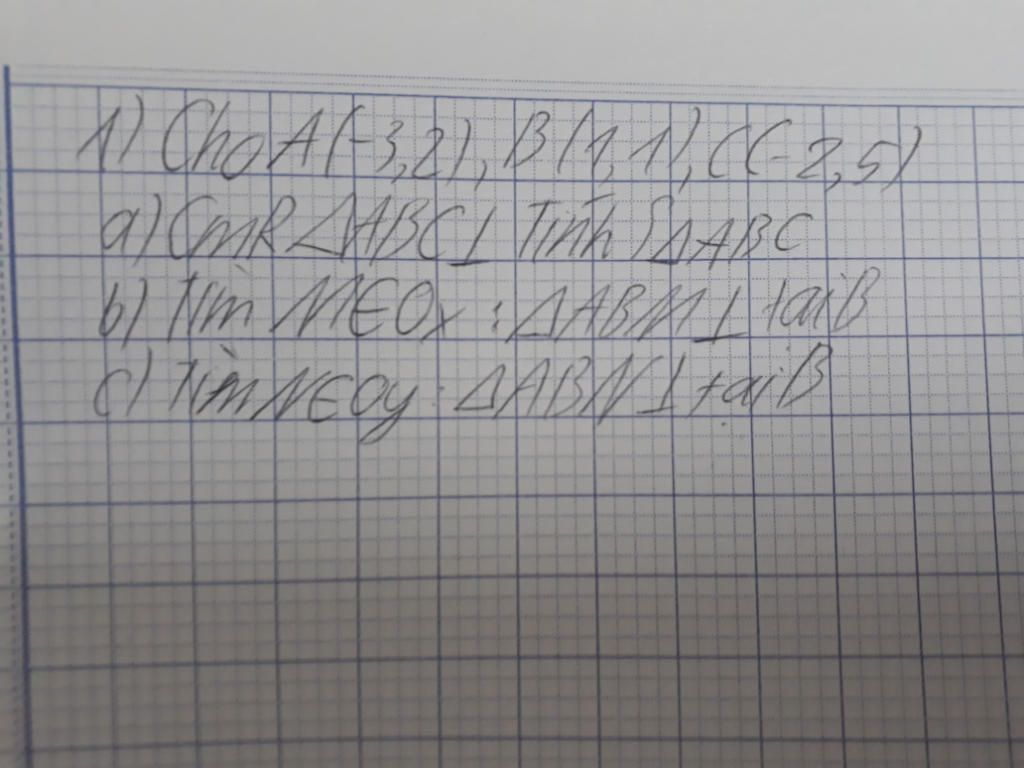 1) Cho A(-3,2), B(1,1), C(-2,5)
a) CmR ΔABC⊥ Tính SΔABC
b) Tìm M∈Ox : ΔABM⊥ tại B
c) Tìm N∈Oy : ΔABN⊥ tại B